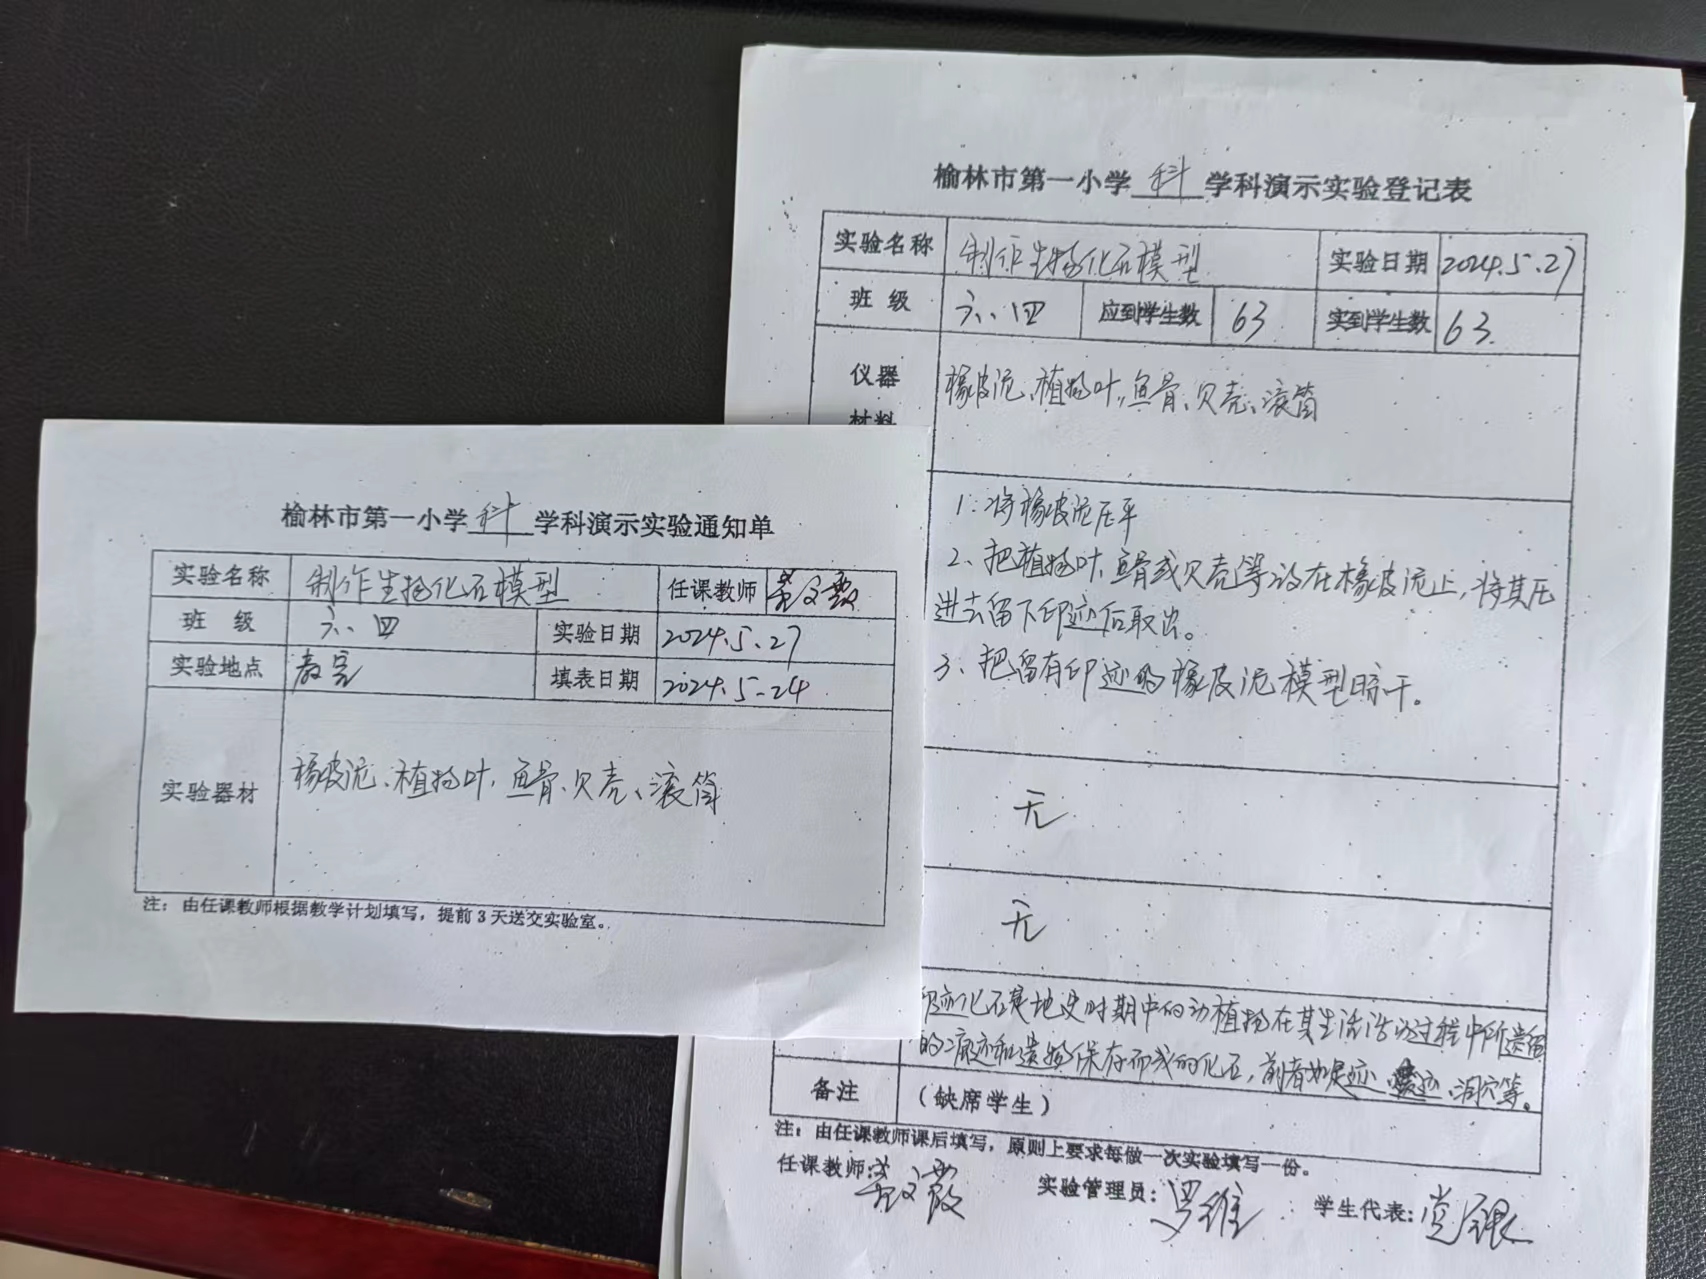 榆林市第一小学 科 学科演示实验通知单
实验名称 制作生物化石模型 任课教师
班 级 六、四 实验日期 2024.5.27
实验地点 教室 填表日期 2024.5.24
实验器材 橡皮泥、植物叶、鱼骨、贝壳、滚筒
注：由任课教师根据教学计划填写，提前3天送交实验室。
榆林市第一小学 科 学科演示实验登记表
实验名称 制作生物化石模型 实验日期 2024.5.27
班 级 六、四 应到学生数 63 实到学生数 63.
仪器
材料
橡皮泥、植物叶、鱼骨、贝壳、滚筒
1、将橡皮泥压平
2、把植物叶、鱼骨或贝壳等放在橡皮泥上，将其压
进去留下印迹后取出。
3、把留有印迹的橡皮泥模型晾干。
无
无
印迹化石是地史时期中的动植物在其生活活动过程中所遗留
的痕迹和遗物保存而成的化石，前者如足迹、迹、洞穴等。
备注 （缺席学生）
注：由任课教师课后填写，原则上要求每做一次实验填写一份。
任课教师： 实验管理员：罗维 学生代表：